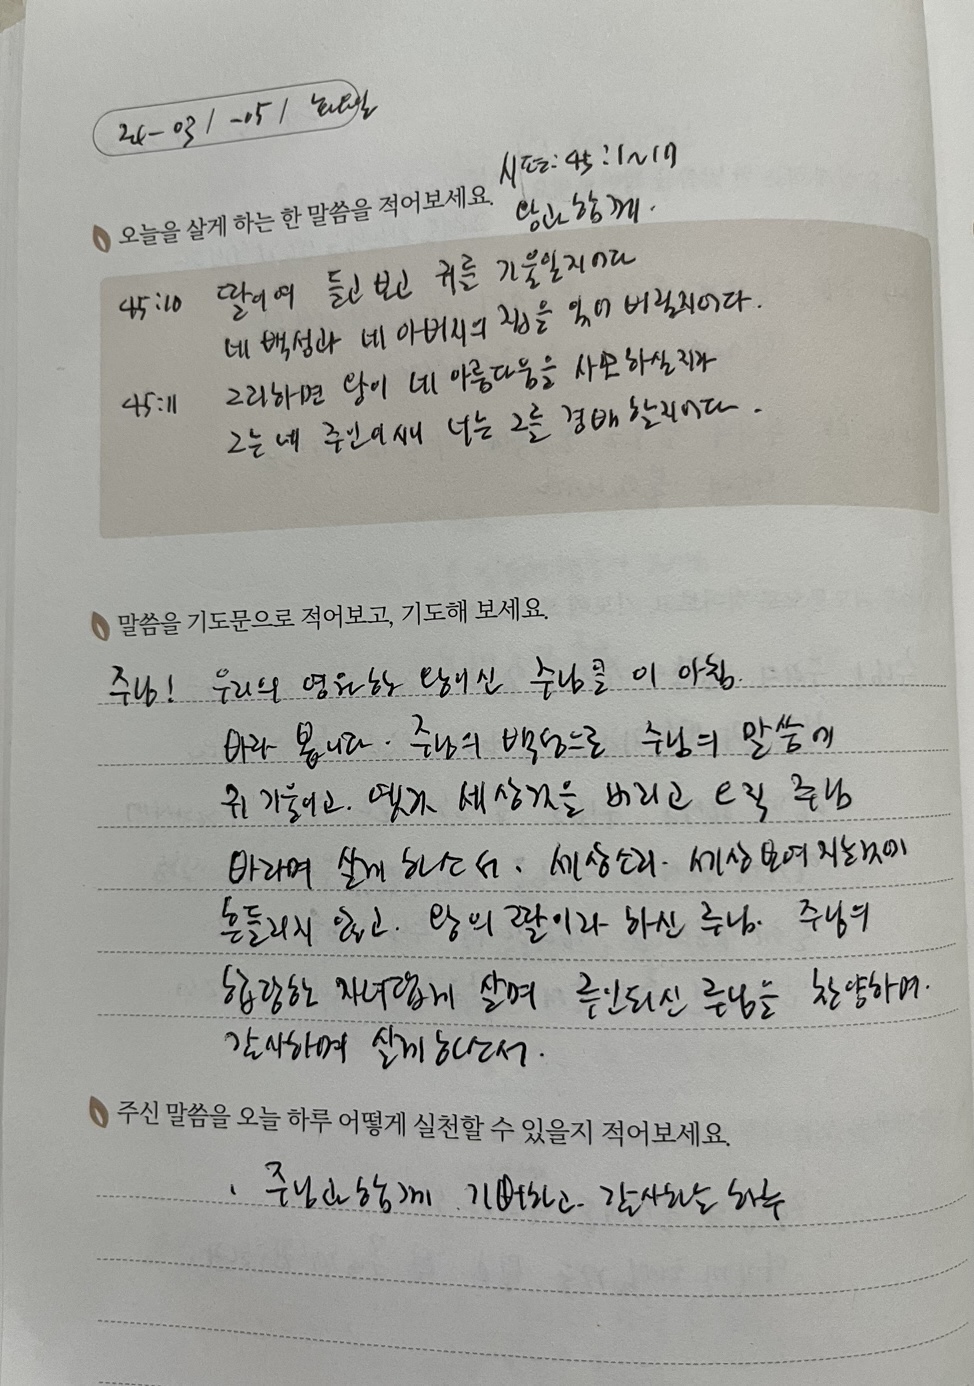 24-03/-05/ 화요일
시편: 45:1~17
오늘을 살게 하는 한 말씀을 적어보세요.
왕과 함께.
45:10 딸이여 듣고 보고 귀를 기울일지어다
네 백성과 네 아버지의 집을 잊어 버릴지어다.
45:11 그리하면 왕이 네 아름다움을 사모하실지라
그는 네 주인이시니 너는 그를 경배할지어다.
말씀을 기도문으로 적어보고, 기도해 보세요.
주님! 우리의 영원한 왕이신 주님을 이 아침.
바라 봅니다. 주님의 백성으로 주님의 말씀에
귀 기울이고. 옛것 세상것을 버리고 오직 주님
바라며 살게 하소서. 세상소리. 세상 보여지는것에
흔들리지 않고. 왕의 딸이라 하신 주님. 주님의
합당한 자녀답게 살며 주인되신 주님을 찬양하며.
감사하며 살게 하소서.
주신 말씀을 오늘 하루 어떻게 실천할 수 있을지 적어보세요.
. 주님과 함께 기뻐하고. 감사하는 하루